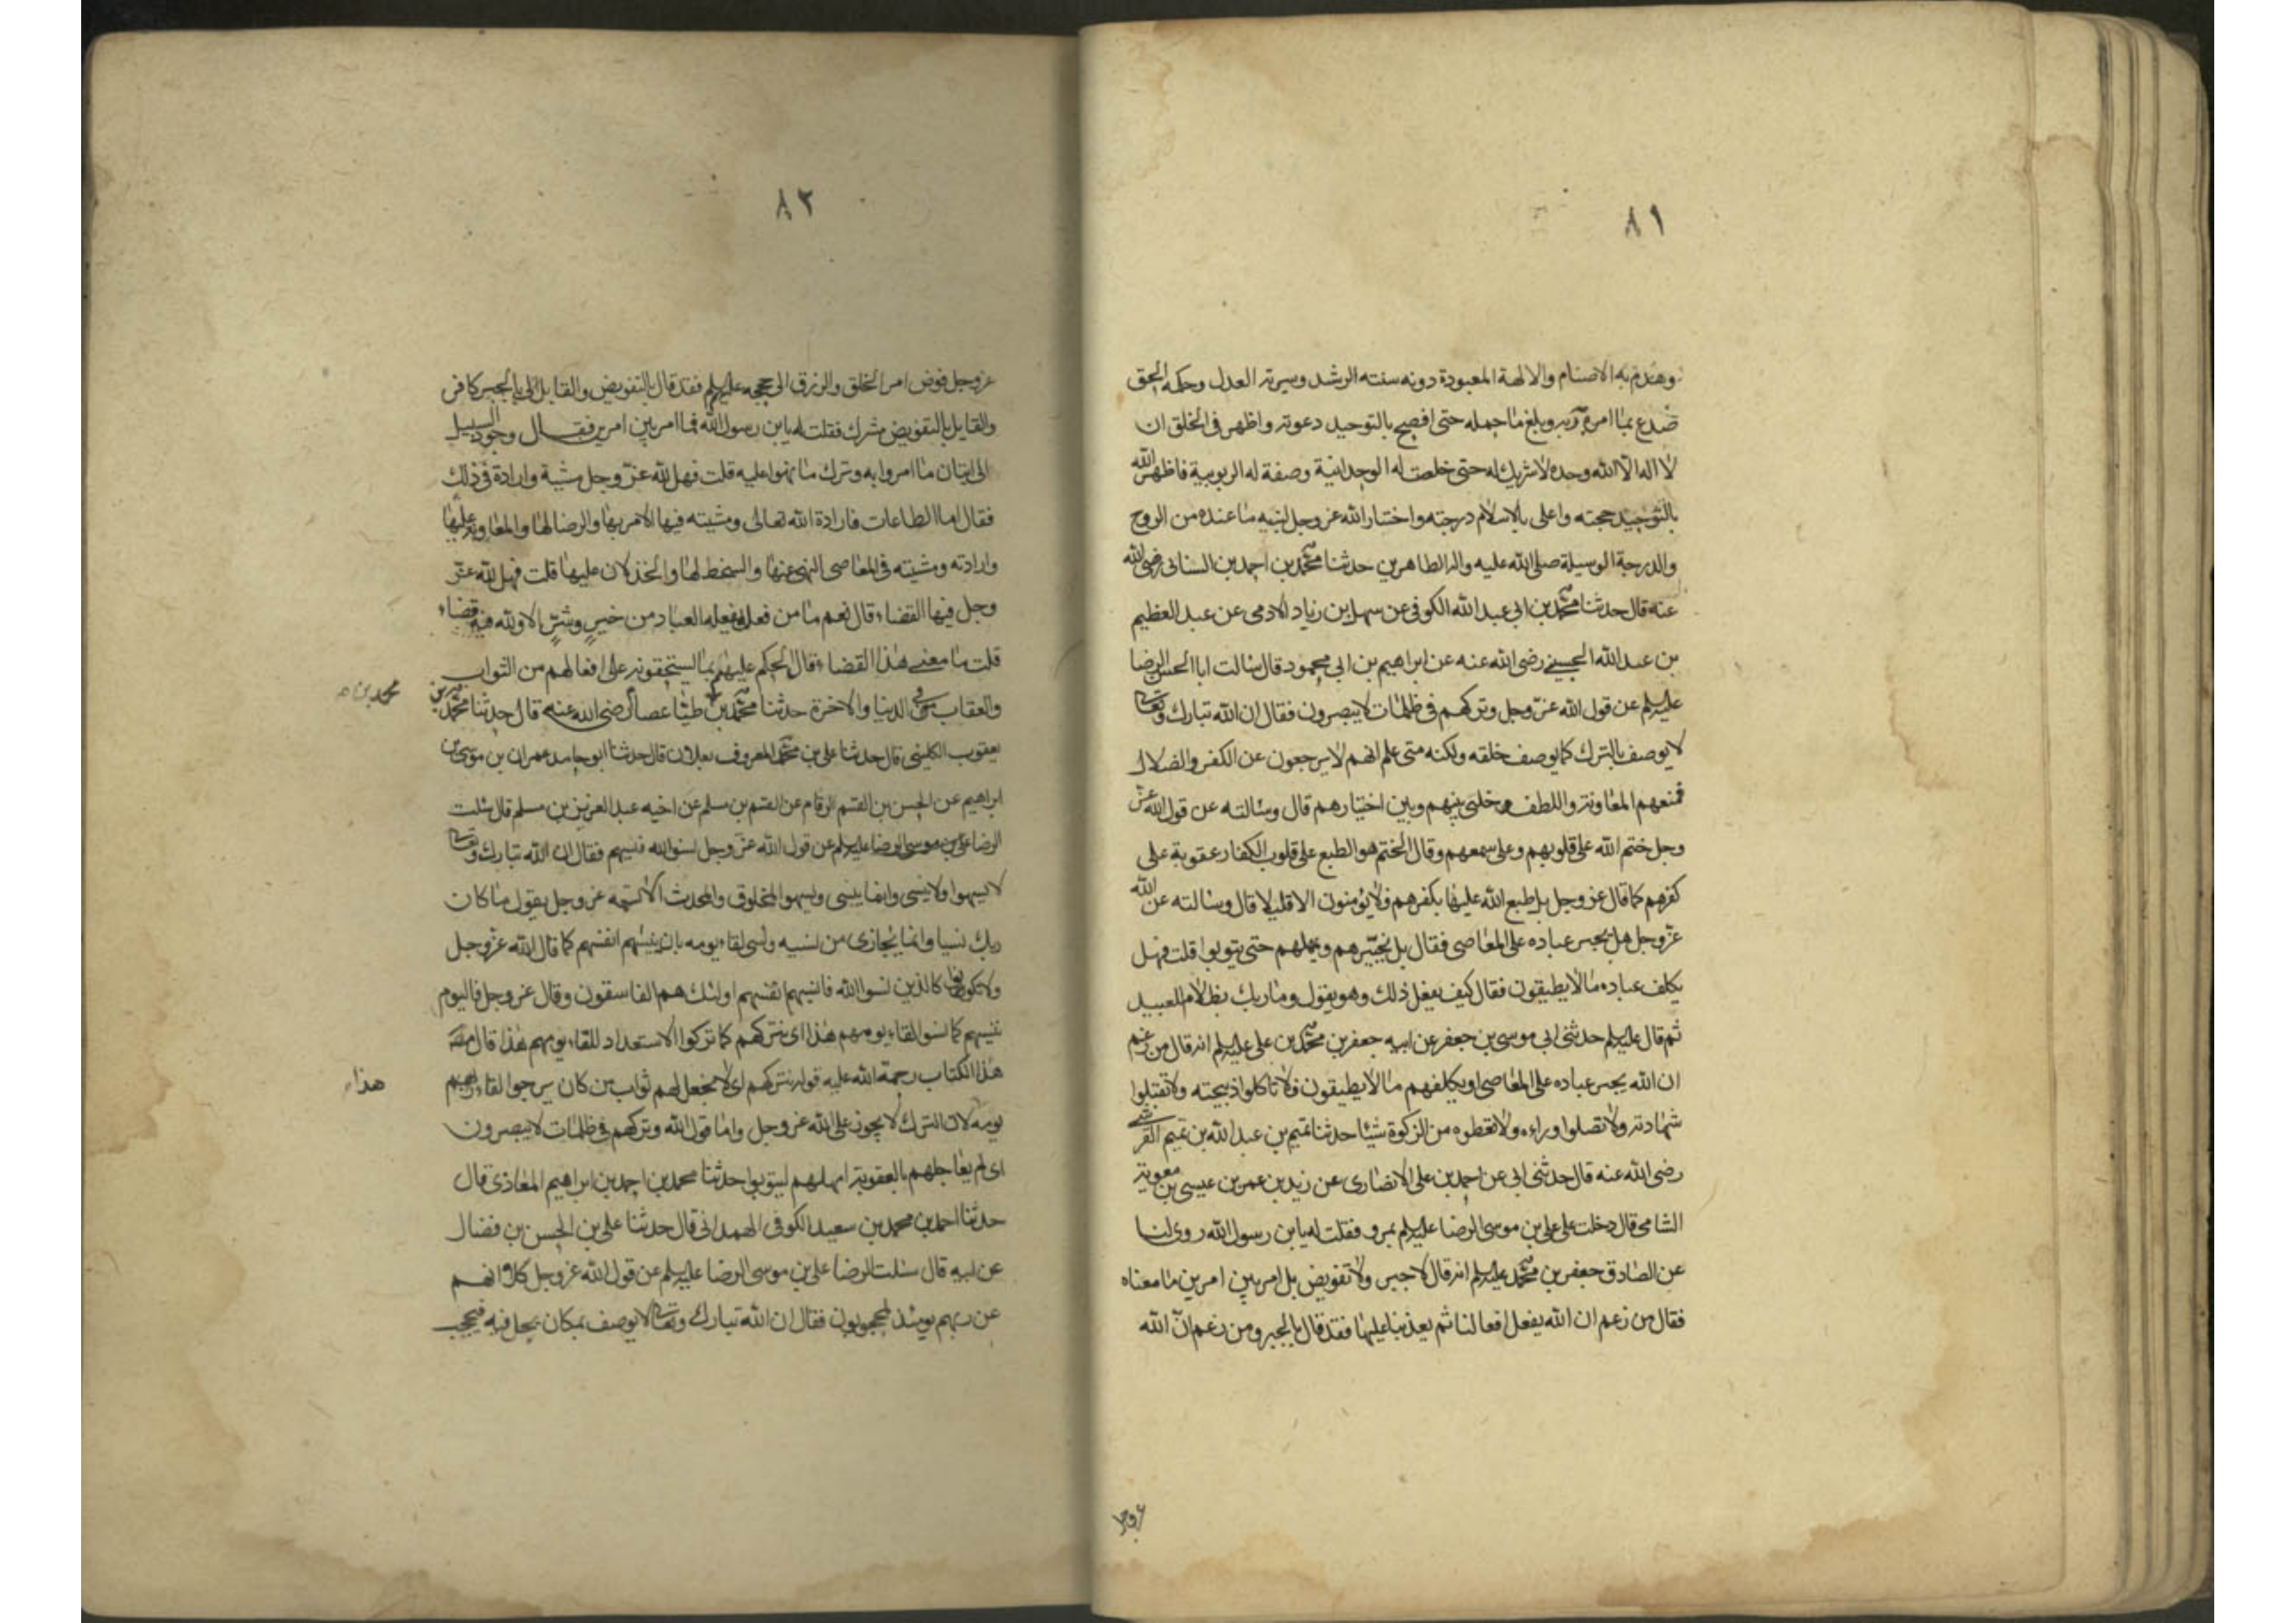 ٨١
وهدم به الاصنام والالهة المعبودة دونه سنته الرشد وسيرته العدل وحكمه الحق
صدع بما امره ربه وبلغ ما حمله حتى افصح بالتوحيد دعوته واظهر فى الخلق ان
لا اله الا الله وحده لا شريك له حتى خلصت له الوحدانية وصفة له الربوبية فاظهر الله
بالتوحيد حجته واعلى بالاسلام درجته واختار الله عز وجل لنبيه ما عنده من الروح
والدرجة الوسيلة صلى الله عليه واله الطاهرين حدثنا محمد بن احمد بن السنانى رضى الله
عنه قال حدثنا محمد بن ابى عبد الله الكوفى عن سهل بن زياد الادمى عن عبد العظيم
بن عبد الله الحسنى رضى الله عنه عن ابراهيم بن ابى محمود قال سالت ابا الحسن الرضا
عليه السلم عن قول الله عز وجل وتركهم فى ظلمات لا يبصرون فقال ان الله تبارك وتعالى
لا يوصف بالترك كما يوصف خلقه ولكنه متى علم انهم لا يرجعون عن الكفر والضلال
فمنعهم المعاونة واللطف وخلى بينهم وبين اختيارهم قال وسالته عن قول الله عز
وجل ختم الله على قلوبهم وعلى سمعهم وقال الختم هو الطبع على قلوب الكفار عقوبة على
كفرهم كما قال عز وجل بل طبع الله عليها بكفرهم فلا يؤمنون الا قليلا قال وسالته عن الله
عز وجل هل يجبر عباده على المعاصى فقال بل يخيرهم ويمهلهم حتى يتوبوا قلت فهل
يكلف عباده ما لا يطيقون فقال كيف يفعل ذلك وهو يقول وما ربك بظلام للعبيد
ثم قال عليه السلم حدثنى ابى موسى بن جعفر عن ابيه جعفر بن محمد بن على عليه السلم انه قال من زعم
ان الله يجبر عباده على المعاصى او يكلفهم ما لا يطيقون فلا تاكلوا ذبيحته ولا تقبلوا
شهادته ولا تصلوا وراءه ولا تعطوه من الزكوة شيئا حدثنا تميم بن عبد الله بن تميم القرشى
رضى الله عنه قال حدثنى ابى عن احمد بن على الانصارى عن زيد بن عمر بن عيسى بن معوية
الشامى قال دخلت على على بن موسى الرضا عليه السلم بمرو فقلت له يا بن رسول الله روى لنا
عن الصادق جعفر بن محمد عليه السلم انه قال لا جبر ولا تفويض بل امر بين امرين ما معناه
فقال من زعم ان الله يفعل افعالنا ثم يعذبنا عليها فقد قال بالجبر ومن زعم ان الله
عز وجل
٨٢
عز وجل فوض امر الخلق والرزق الى حججه عليهم السلم فقد قال بالتفويض والقايل بالجبر كافر
والقايل بالتفويض مشرك فقلت له يا بن رسول الله فما امر بين امرين فقال وجود السبيل
الى اتيان ما امروا به وترك ما نهوا عليه قلت فهل لله عز وجل مشية وارادة فى ذلك
فقال اما الطاعات فارادة الله تعالى ومشيته فيها الامر بها والرضا لها والمعاونة عليها
وارادته ومشيته فى المعاصى النهى عنها والسخط لها والخذلان عليها قلت فهل لله عز
وجل فيها القضاء قال نعم ما من فعل يفعله العباد من خير وشر الا ولله فيه قضاء
قلت ما معنى هذا القضاء قال الحكم عليهم بما يستحقونه على افعالهم من الثواب
والعقاب فى الدنيا والاخرة حدثنا محمد بن عصام رضى الله عنه قال حدثنا محمد بن
محمد بن
يعقوب الكلينى قال حدثنا على بن محمد المعروف بعلان قال حدثنا ابو حامد عمران بن موسى بن
ابراهيم عن الحسن بن القسم الرقام عن القسم بن مسلم عن اخيه عبد العزيز بن مسلم قال سئلت
الرضا على بن موسى الرضا عليه السلم عن قول الله عز وجل نسوا الله فنسيهم فقال ان الله تبارك وتعالى
لا يسهوا ولا ينسى وانما ينسى ويسهوا المخلوق والمحدث الا تسمعه عز وجل يقول ما كان
ربك نسيا وانما يجازى من نسيه ونسى لقاء يومه بان ينسيهم انفسهم كما قال الله عز وجل
ولا تكونوا كالذين نسوا الله فانسيهم انفسهم اولئك هم الفاسقون وقال عز وجل فاليوم
ننسيهم كما نسوا لقاء يومهم هذا اى نتركهم كما تركوا الاستعداد للقاء يومهم هذا قال مصنف
هذا الكتاب رحمة الله عليه قوله نتركهم اى لا نجعل لهم ثواب من كان يرجوا لقاء
هذا
يومه لان الترك لا يجوز على الله عز وجل واما قول الله وتركهم فى ظلمات لا يبصرون
اى لم يعاجلهم بالعقوبة امهلهم ليتوبوا حدثنا محمد بن احمد بن ابراهيم المعاذى قال
حدثنا احمد بن محمد بن سعيد الكوفى الهمدانى قال حدثنا على بن الحسن بن فضال
عن ابيه قال سئلت الرضا على بن موسى الرضا عليه السلم عن قول الله عز وجل كلا انهم
عن ربهم يومئذ لمحجوبون فقال ان الله تبارك وتعالى لا يوصف بمكان يحل فيه فيحجب